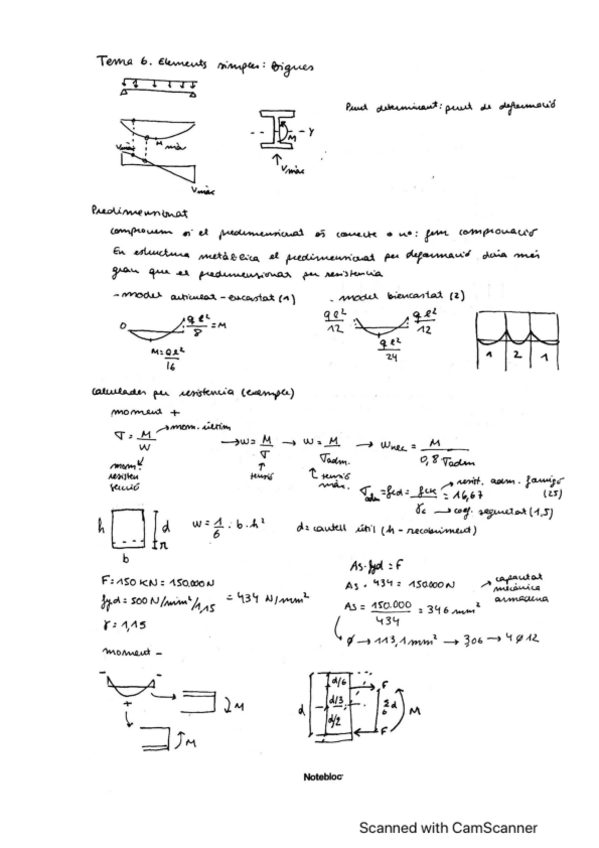 Tema 6. Elements simples: Bigues
Punt determinant: punt de deformació
Vmàx
M màx
Vmàx
M
y
Vmàx
Predimensionat
comprovem si el predimensionat és correcte o no: fem comprovació
En estructura metàl·lica el predimensionat per deformació dóna més
gran que el predimensionat per resistència
- model articulat - encastat (1)
. model biencastat (2)
0
qℓ²/8 = M
M = qℓ²/16
qℓ²/12
qℓ²/12
qℓ²/24
1 2 1
Calculades per resistència (exemple)
moment +
σ = M/W
mom. últim
mom. resistent secció
→ W = M/σ → W = M/σadm. → Wnec = M/0,8 σadm
tensió
tensió màx.
σadm = fcd = fck/γc = 16,67
resist. adm. formigó (25)
coef. seguretat (1,5)
h
d
r
b
W = 1/6 · b · h²
d = cantell útil (h - recobriment)
F = 150 KN = 150.000 N
fyd = 500 N/mm²/1,15 = 434 N/mm²
γ = 1,15
As · fyd = F
As · 434 = 150.000 N
capacitat mecànica armadura
As = 150.000/434 = 346 mm²
ø → 113,1 mm² → 3,06 → 4 ø 12
moment -
-
-
+
M
M
d
d/6
d/3
d/2
F
F
M
Notebloc
Scanned with CamScanner